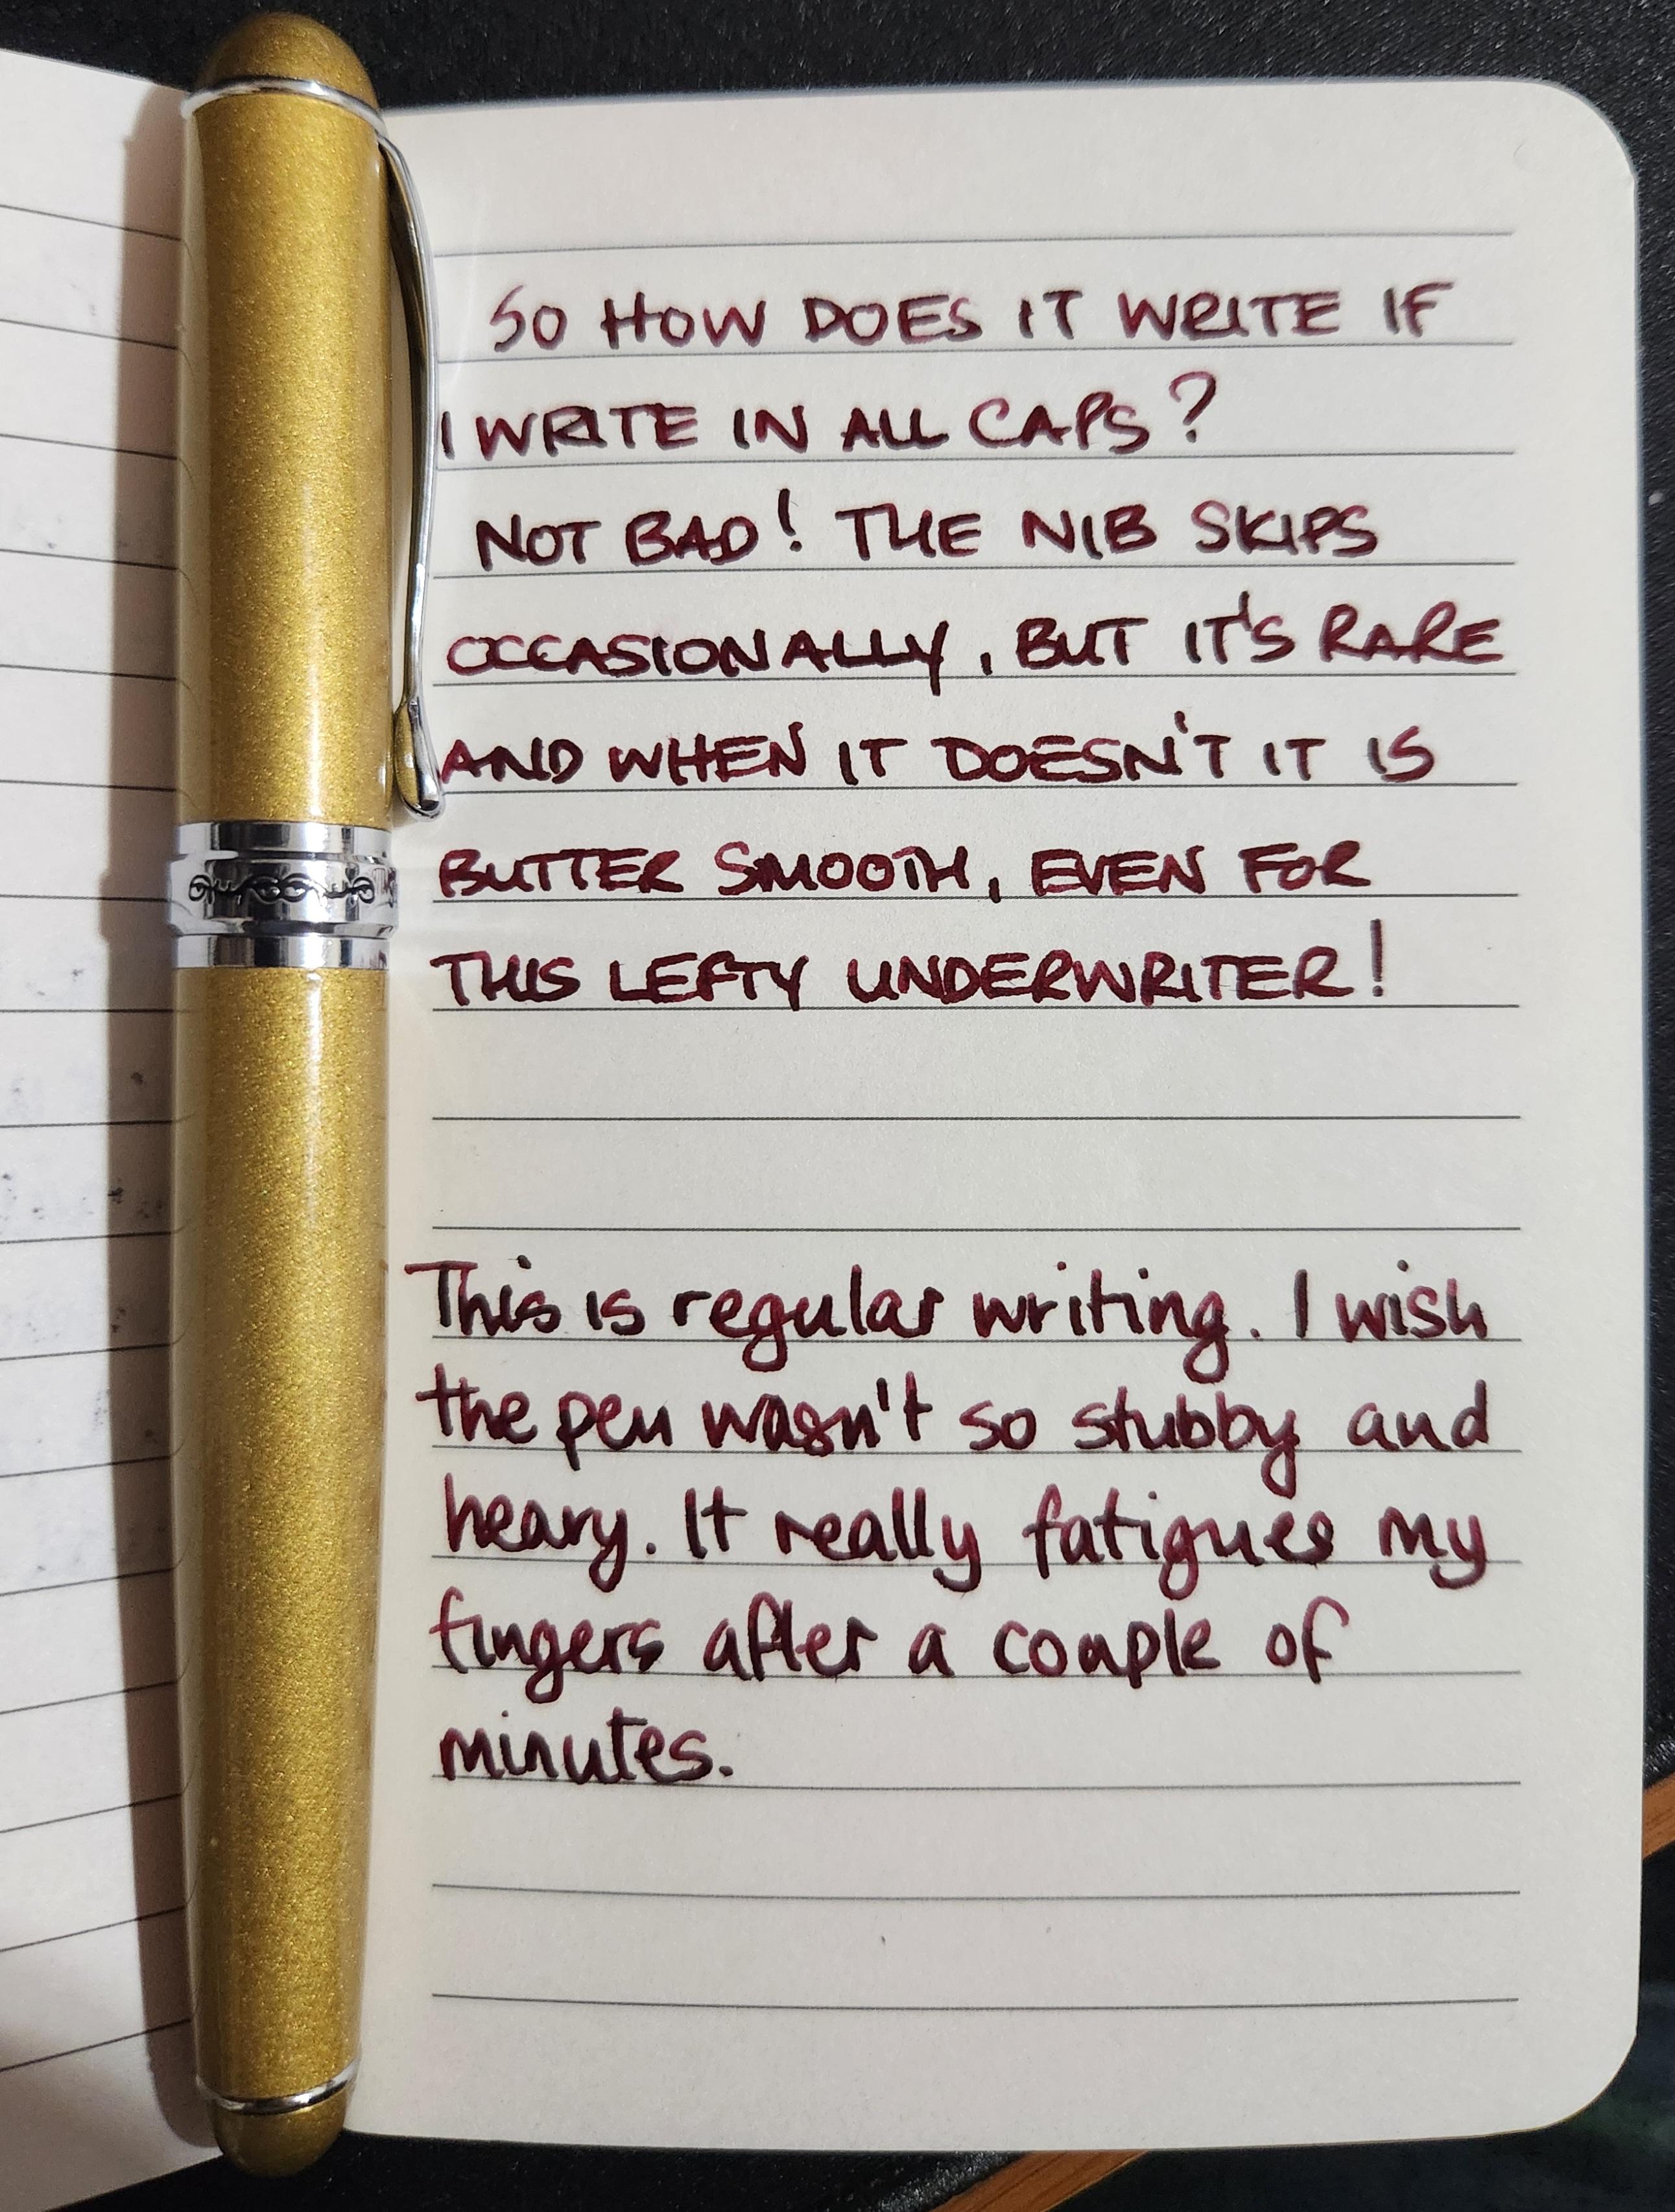 SO HOW DOES IT WRITE IF
I WRITE IN ALL CAPS?
NOT BAD! THE NIB SKIPS
OCCASIONALLY, BUT IT'S RARE
AND WHEN IT DOESN'T IT IS
BUTTER SMOOTH, EVEN FOR
THIS LEFTY UNDERWRITER!
This is regular writing. I wish
the pen wasn't so stubby and
heavy. It really fatigues my
fingers after a couple of
minutes.